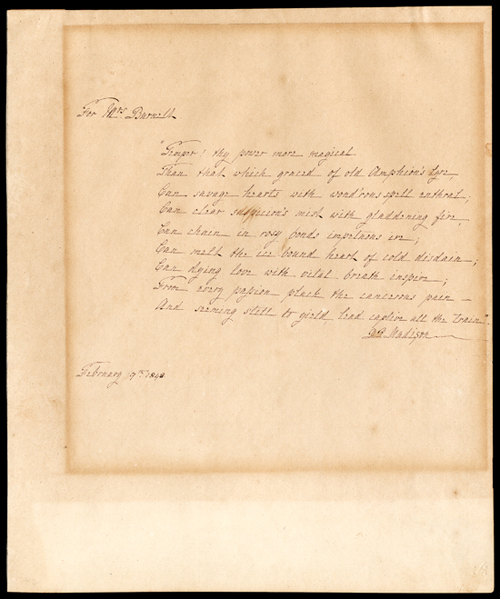 For Mrs. Burnell
"Temper! thy power more magical
Than that which graced of old Amphion's lyre
Can savage hearts with wond'rous spell enthral;
Can clear suspicion's mist with gladdening fire,
Can chain in rosy bonds impetuous ire;
Can melt the ice bound heart of cold disdain;
Can dying love with vital breath inspire;
From every passion pluck the cancerous pain –
And seeming still to yield lead captive all the train".
Madison
February 9th 184